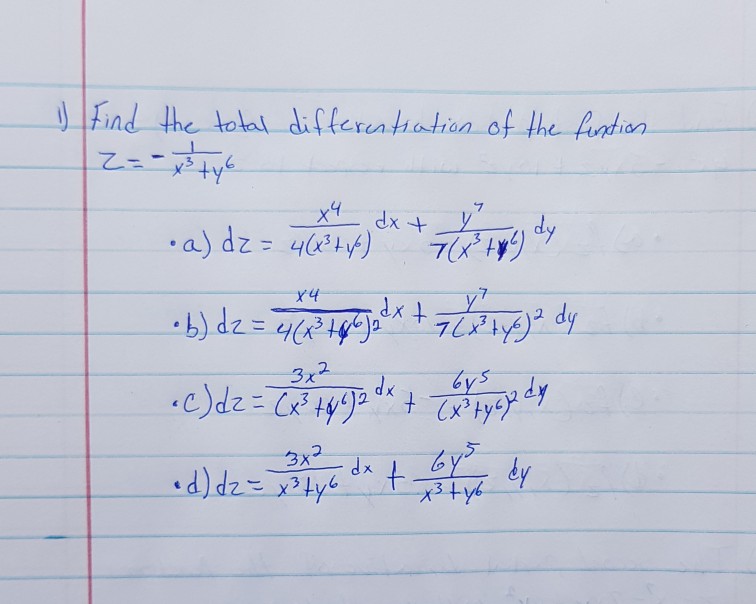 1) Find the total differentiation of the funtion
z = - 1/(x³+y⁶)
• a) dz = x⁴/(4(x³+y⁶)) dx + y⁷/(7(x³+y⁶)) dy
• b) dz = x⁴/(4(x³+y⁶)²) dx + y⁷/(7(x³+y⁶)²) dy
• c) dz = 3x²/(x³+y⁶)² dx + 6y⁵/(x³+y⁶)² dy
• d) dz = 3x²/(x³+y⁶) dx + 6y⁵/(x³+y⁶) dy